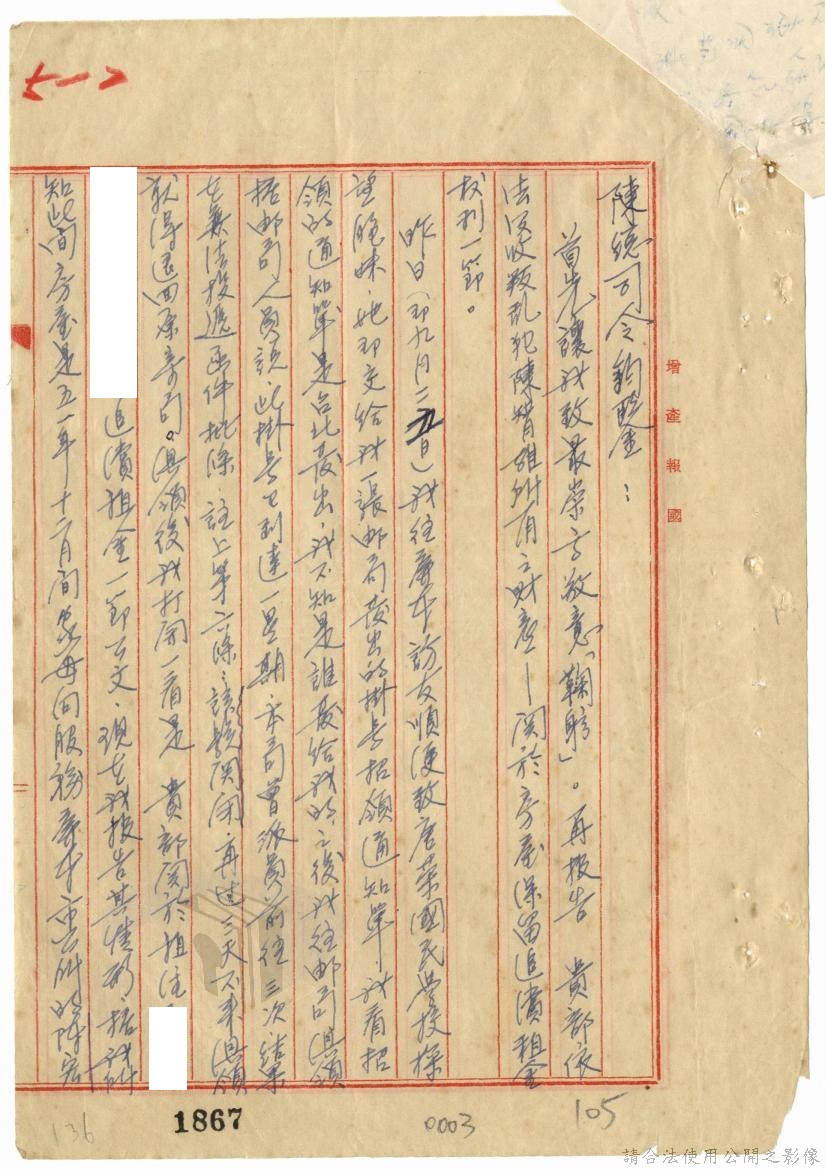 五一 2
增產報國
陳總司令鈞鑒：
首先讓我致最崇高敬意「鞠躬」。再報告 貴部依
法沒收叛乱犯陳智雄所有之財產—関於房屋保留追償租金
权利一節。
昨日（即九月二五日）我往屏东訪友順便致唐荣國民学校探
望胞妹，她即交给我一張邮局發出的掛号招領通知单，我看招
領的通知单是台北發出，我不知是誰發给我的，之後我往邮局汜領
据邮局人員說，此掛号已到達一星期，本局曾派員前往三次結果
無法投遞函件批條 註上第六條，該號関闭 再过三天不来汜領
就得退回原寄局。汜領後我打開一看是 貴部関於姐住
追償租金一節公文，現在我报告其情形，据我所
知此间房屋是五一年十二月间家母向服務屏东 所的陳
136
1867
0003
105
請合法使用公開之影像